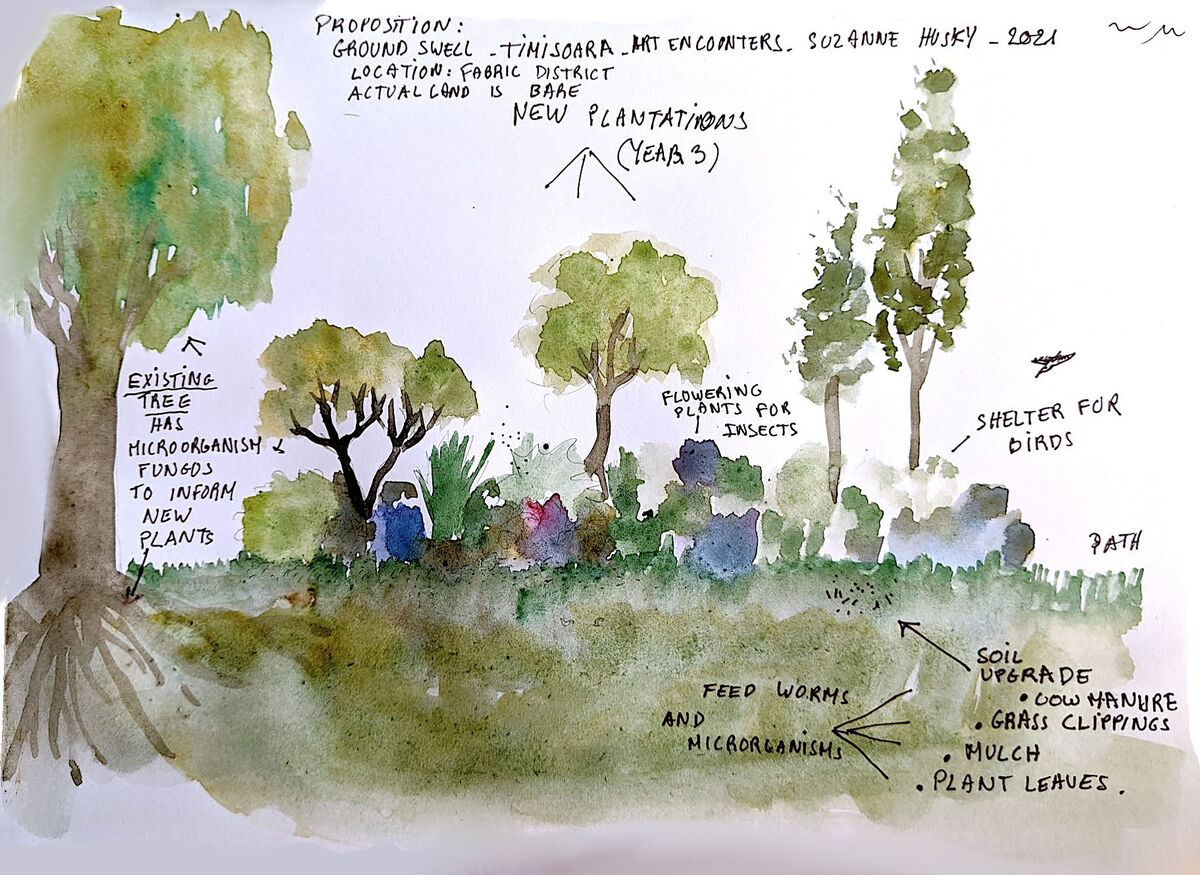 PROPOSTION:
GROUND SWELL - TIMISOARA - ART ENCOONTERS. SUZANNE HUSKY - 2021
LOCATION: FABRIC DISTRICT
ACTUAL LAND IS BARE
NEW PLANTATIONS
(YEAR 3)
EXISTING
TREE
HAS
MICROORGANISM
FUNGOS
TO INFORM
NEW
PLANTS
FLOWERING
PLANTS FOR
INSECTS
SHELTER FOR
BIRDS
PATH
SOIL
UPGRADE
• COW MANURE
• GRASS CLIPPINGS
• MULCH
• PLANT LEAVES.
FEED WORMS
AND
MICRORGANISMS